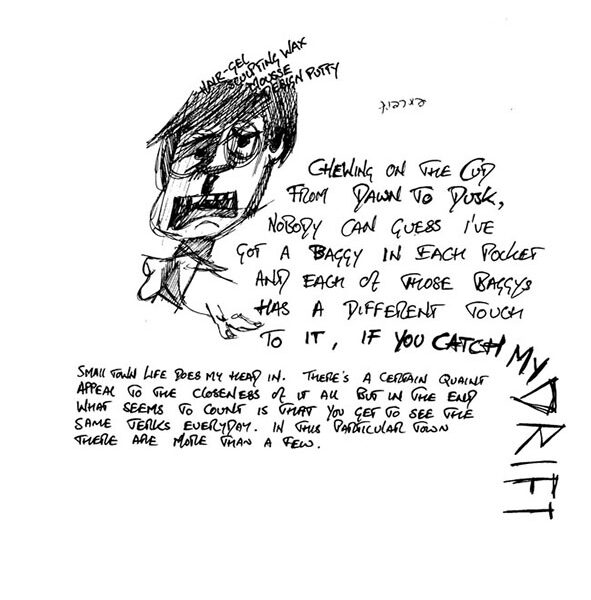 HAIR-GEL
SCULPTING WAX
MOUSSE
DESIGN PUTTY
CHEWING ON THE CUD
FROM DAWN TO DUSK,
NOBODY CAN GUESS I'VE
GOT A BAGGY IN EACH POCKET
AND EACH OF THOSE BAGGYS
HAS A DIFFERENT TOUCH
TO IT, IF YOU CATCH MY DRIFT
SMALL TOWN LIFE DOES MY HEAD IN. THERE'S A CERTAIN QUAINT
APPEAL TO THE CLOSENESS OF IT ALL BUT IN THE END
WHAT SEEMS TO COUNT IS THAT YOU GET TO SEE THE
SAME JERKS EVERYDAY. IN THIS PARTICULAR TOWN
THERE ARE MORE THAN A FEW.